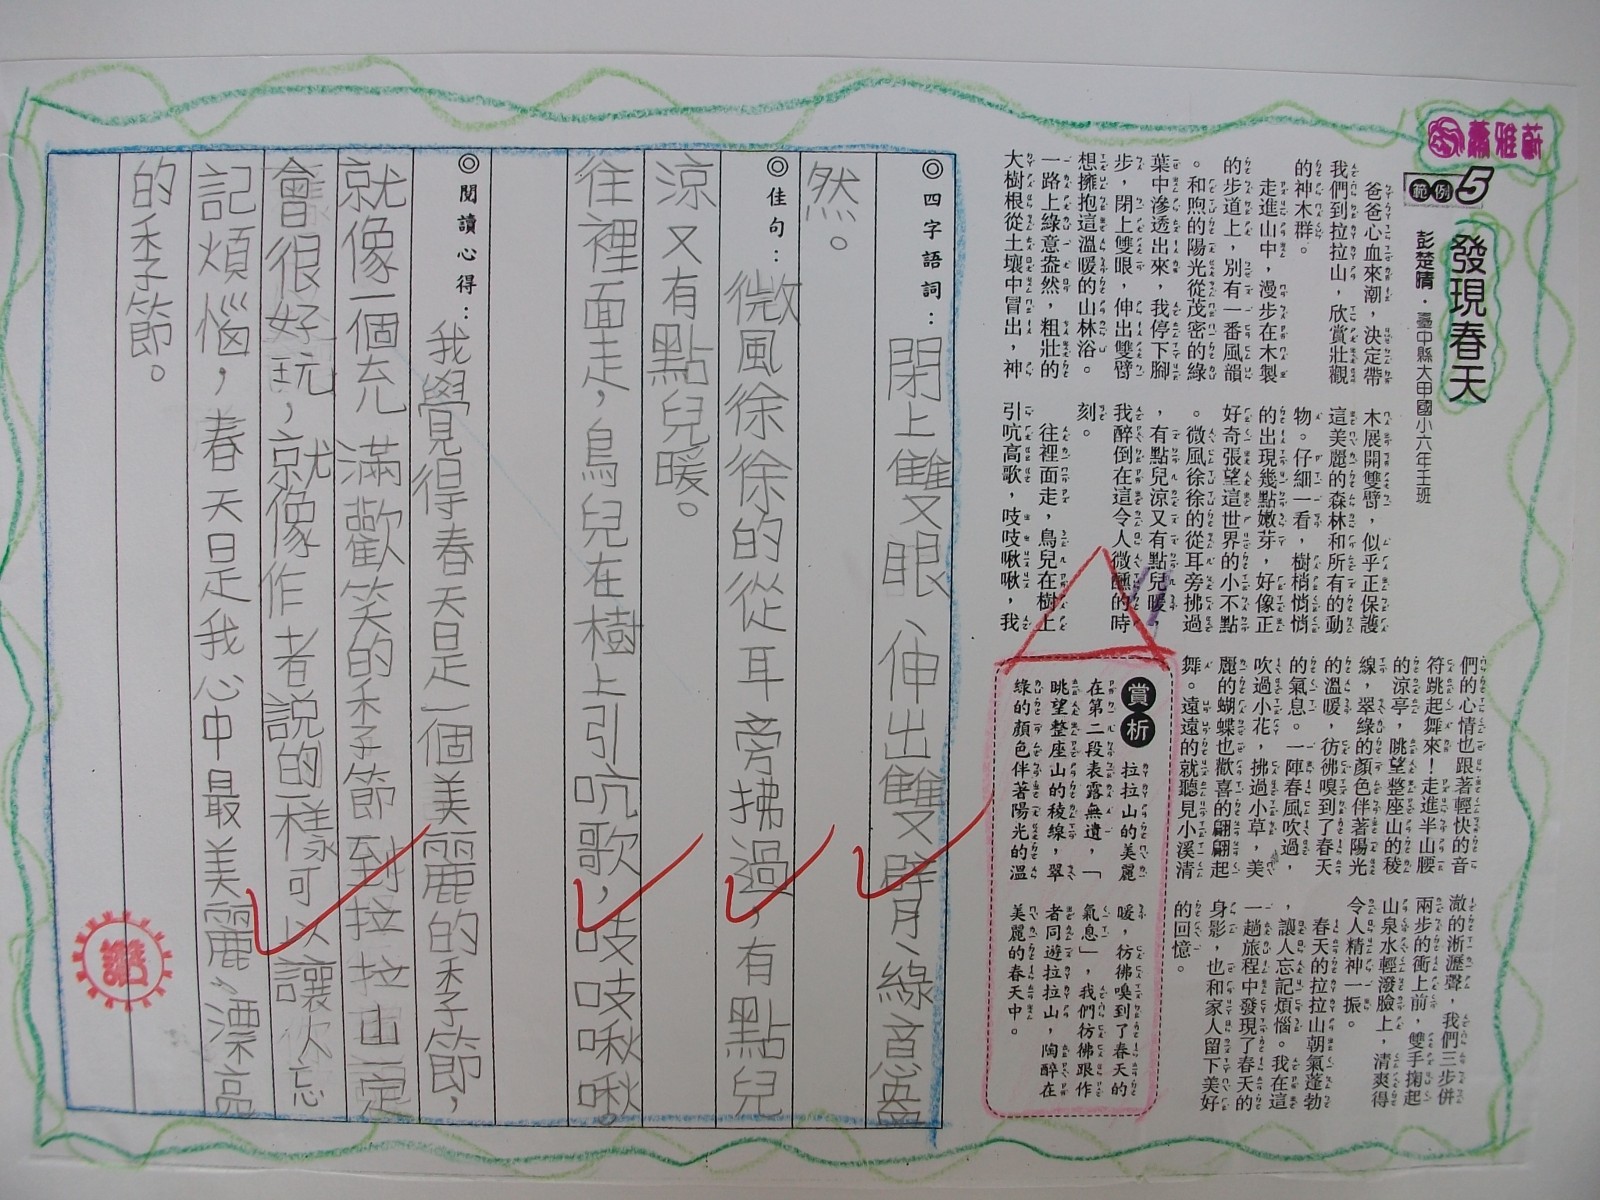 蕭雅蔚
範例5
發現春天
彭楚晴・臺中縣大甲國小六年王班
爸爸心血來潮，決定帶
我們到拉拉山，欣賞壯觀
的神木群。
走進山中，漫步在木製
的步道上，別有一番風韻
。和煦的陽光從茂密的綠
葉中滲透出來，我停下腳
步，閉上雙眼，伸出雙臂
想擁抱這溫暖的山林浴。
一路上綠意盎然，粗壯的
大樹根從土壤中冒出，神
木展開雙臂，似乎正保護
這美麗的森林和所有的動
物。仔細一看，樹梢悄悄
的出現幾點嫩芽，好像正
好奇張望這世界的小不點
。微風徐徐的從耳旁拂過
，有點兒涼又有點兒暖，
我醉倒在這令人微醺的時
刻。
往裡面走，鳥兒在樹上
引吭高歌，吱吱啾啾，我
們的心情也跟著輕快的音
符跳起舞來！走進半山腰
的涼亭，眺望整座山的稜
線，翠綠的顏色伴著陽光
的溫暖，彷彿嗅到了春天
的氣息。一陣春風吹過，
吹過小花，拂過小草，美
麗的蝴蝶也歡喜的翩翩起
舞。遠遠的就聽見小溪清
澈的淅瀝聲，我們三步併
兩步的衝上前，雙手掬起
山泉水輕潑臉上，清爽得
令人精神一振。
春天的拉拉山朝氣蓬勃
，讓人忘記煩惱。我在這
一趟旅程中發現了春天的
身影，也和家人留下美好
的回憶。
賞析
拉拉山的美麗
在第二段表露無遺，「
眺望整座山的稜線，翠
綠的顏色伴著陽光的溫
暖，彷彿嗅到了春天的
氣息」，我們彷彿跟作
者同遊拉拉山，陶醉在
美麗的春天中。
◎四字語詞：閉上雙眼、伸出雙臂、綠意盎
然。
◎佳句：微風徐徐的從耳旁拂過，有點兒
涼又有點兒暖。
往裡面走，鳥兒在樹上引吭歌，吱吱啾啾。
◎閱讀心得：我覺得春天是一個美麗的季節，
就像一個充滿歡笑的季節到拉拉山一定
會很好玩，就像作者說的一樣可以讓你忘
記煩惱，春天是我心中最美麗、漂亮
的季節。
讚